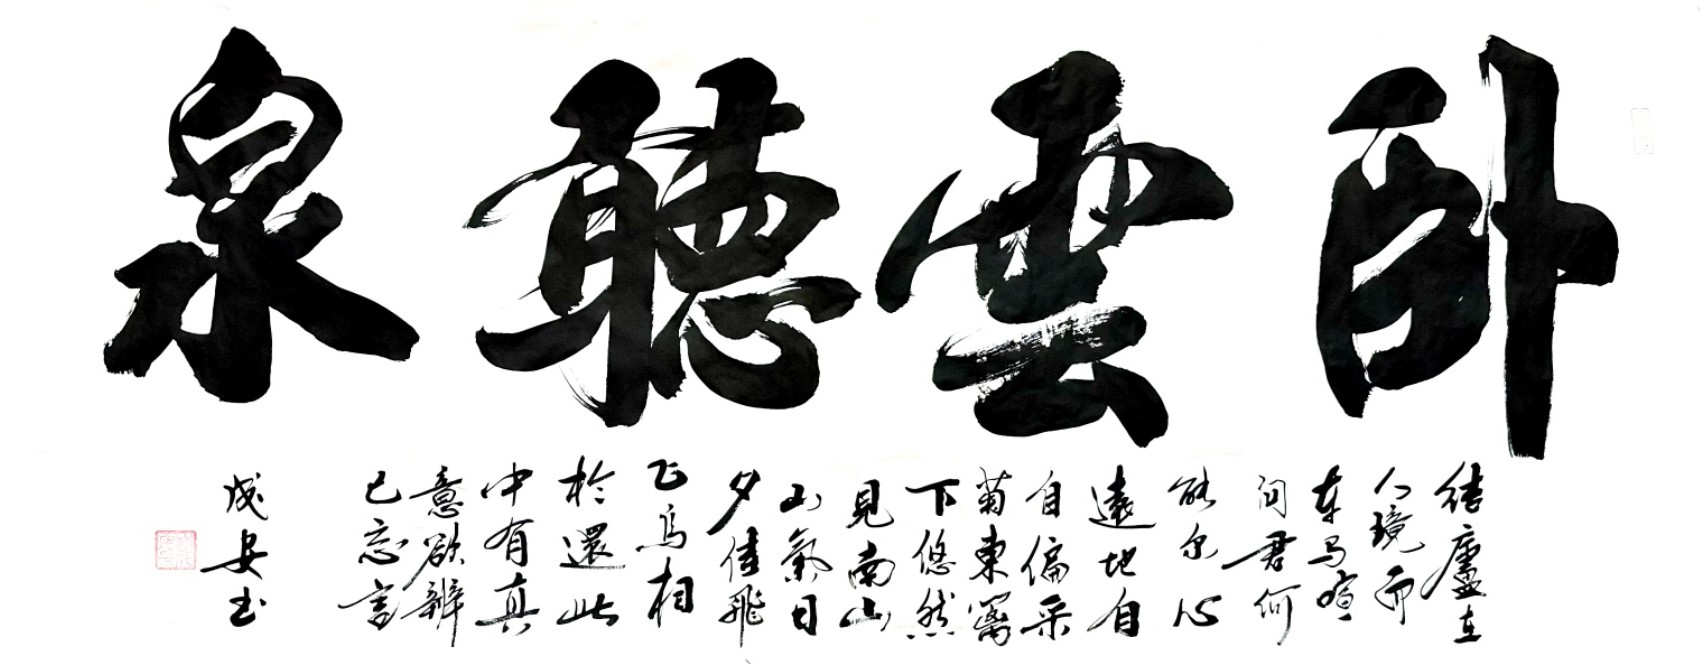 卧雲聽泉
结廬在
人境而
車马喧
问君何
能尔心
遠地自
自偏采
菊東籬
下悠然
見南山
山氣日
夕佳飛
飞鸟相
於還此
中有真
意欲辨
已忘言
成安书